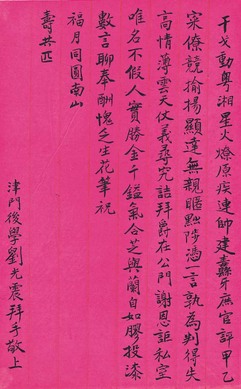 干戈動粵湘星火燎原疾連帥建纛牙庶官評甲乙
寀僚競揄揚顯達無親暱黜陟憑一言孰為判得失
高情薄雲天仗義尋究詰拜爵在公門謝恩詎私室
唯名不假人實勝金千鎰氣合芝與蘭自如膠投漆
數言聊奉酬愧乏生花筆祝
福月同圓南山
壽共匹
津門後學劉光震拜手敬上